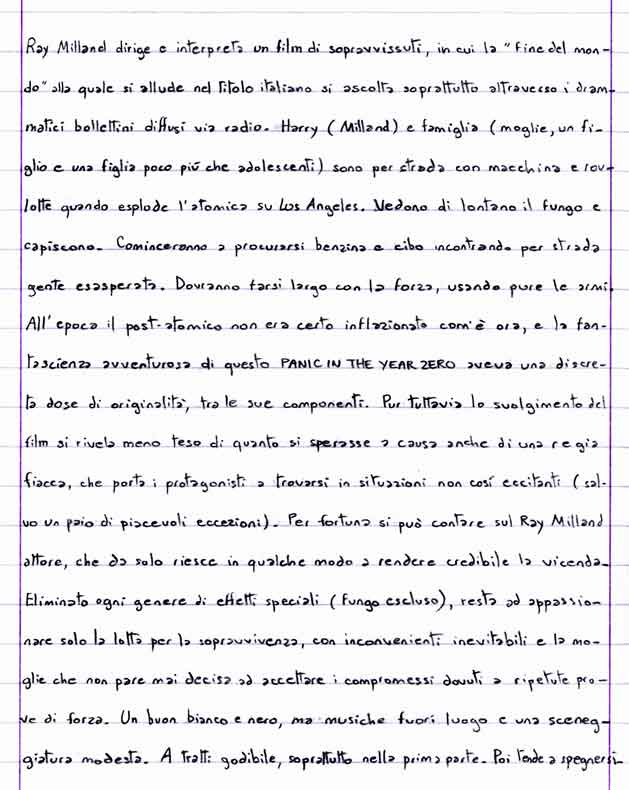 Ray Milland dirige e interpreta un film di sopravvissuti, in cui la "fine del mon-
do" alla quale si allude nel titolo italiano si ascolta soprattutto attraverso i dram-
matici bollettini diffusi via radio. Harry (Milland) e famiglia (moglie, un fi-
glio e una figlia poco più che adolescenti) sono per strada con macchina e rou-
lotte quando esplode l'atomica su Los Angeles. Vedono di lontano il fungo e
capiscono. Cominceranno a procurarsi benzina e cibo incontrando per strada
gente esasperata. Dovranno farsi largo con la forza, usando pure le armi.
All'epoca il post-atomico non era certo inflazionato com'è ora, e la fan-
tascienza avventurosa di questo PANIC IN THE YEAR ZERO aveva una discre-
ta dose di originalità, tra le sue componenti. Pur tuttavia lo svolgimento del
film si rivela meno teso di quanto si sperasse a causa anche di una regia
fiacca, che porta i protagonisti a trovarsi in situazioni non così eccitanti (sal-
vo un paio di piacevoli eccezioni). Per fortuna si può contare sul Ray Milland
attore, che da solo riesce in qualche modo a rendere credibile la vicenda.
Eliminato ogni genere di effetti speciali (fungo escluso), resta ad appassio-
nare solo la lotta per la sopravvivenza, con inconvenienti inevitabili e la mo-
glie che non pare mai decisa ad accettare i compromessi dovuti a ripetute pro-
ve di forza. Un buon bianco e nero, ma musiche fuori luogo e una sceneg-
giatura modesta. A tratti godibile, soprattutto nella prima parte. Poi tende a spegnersi